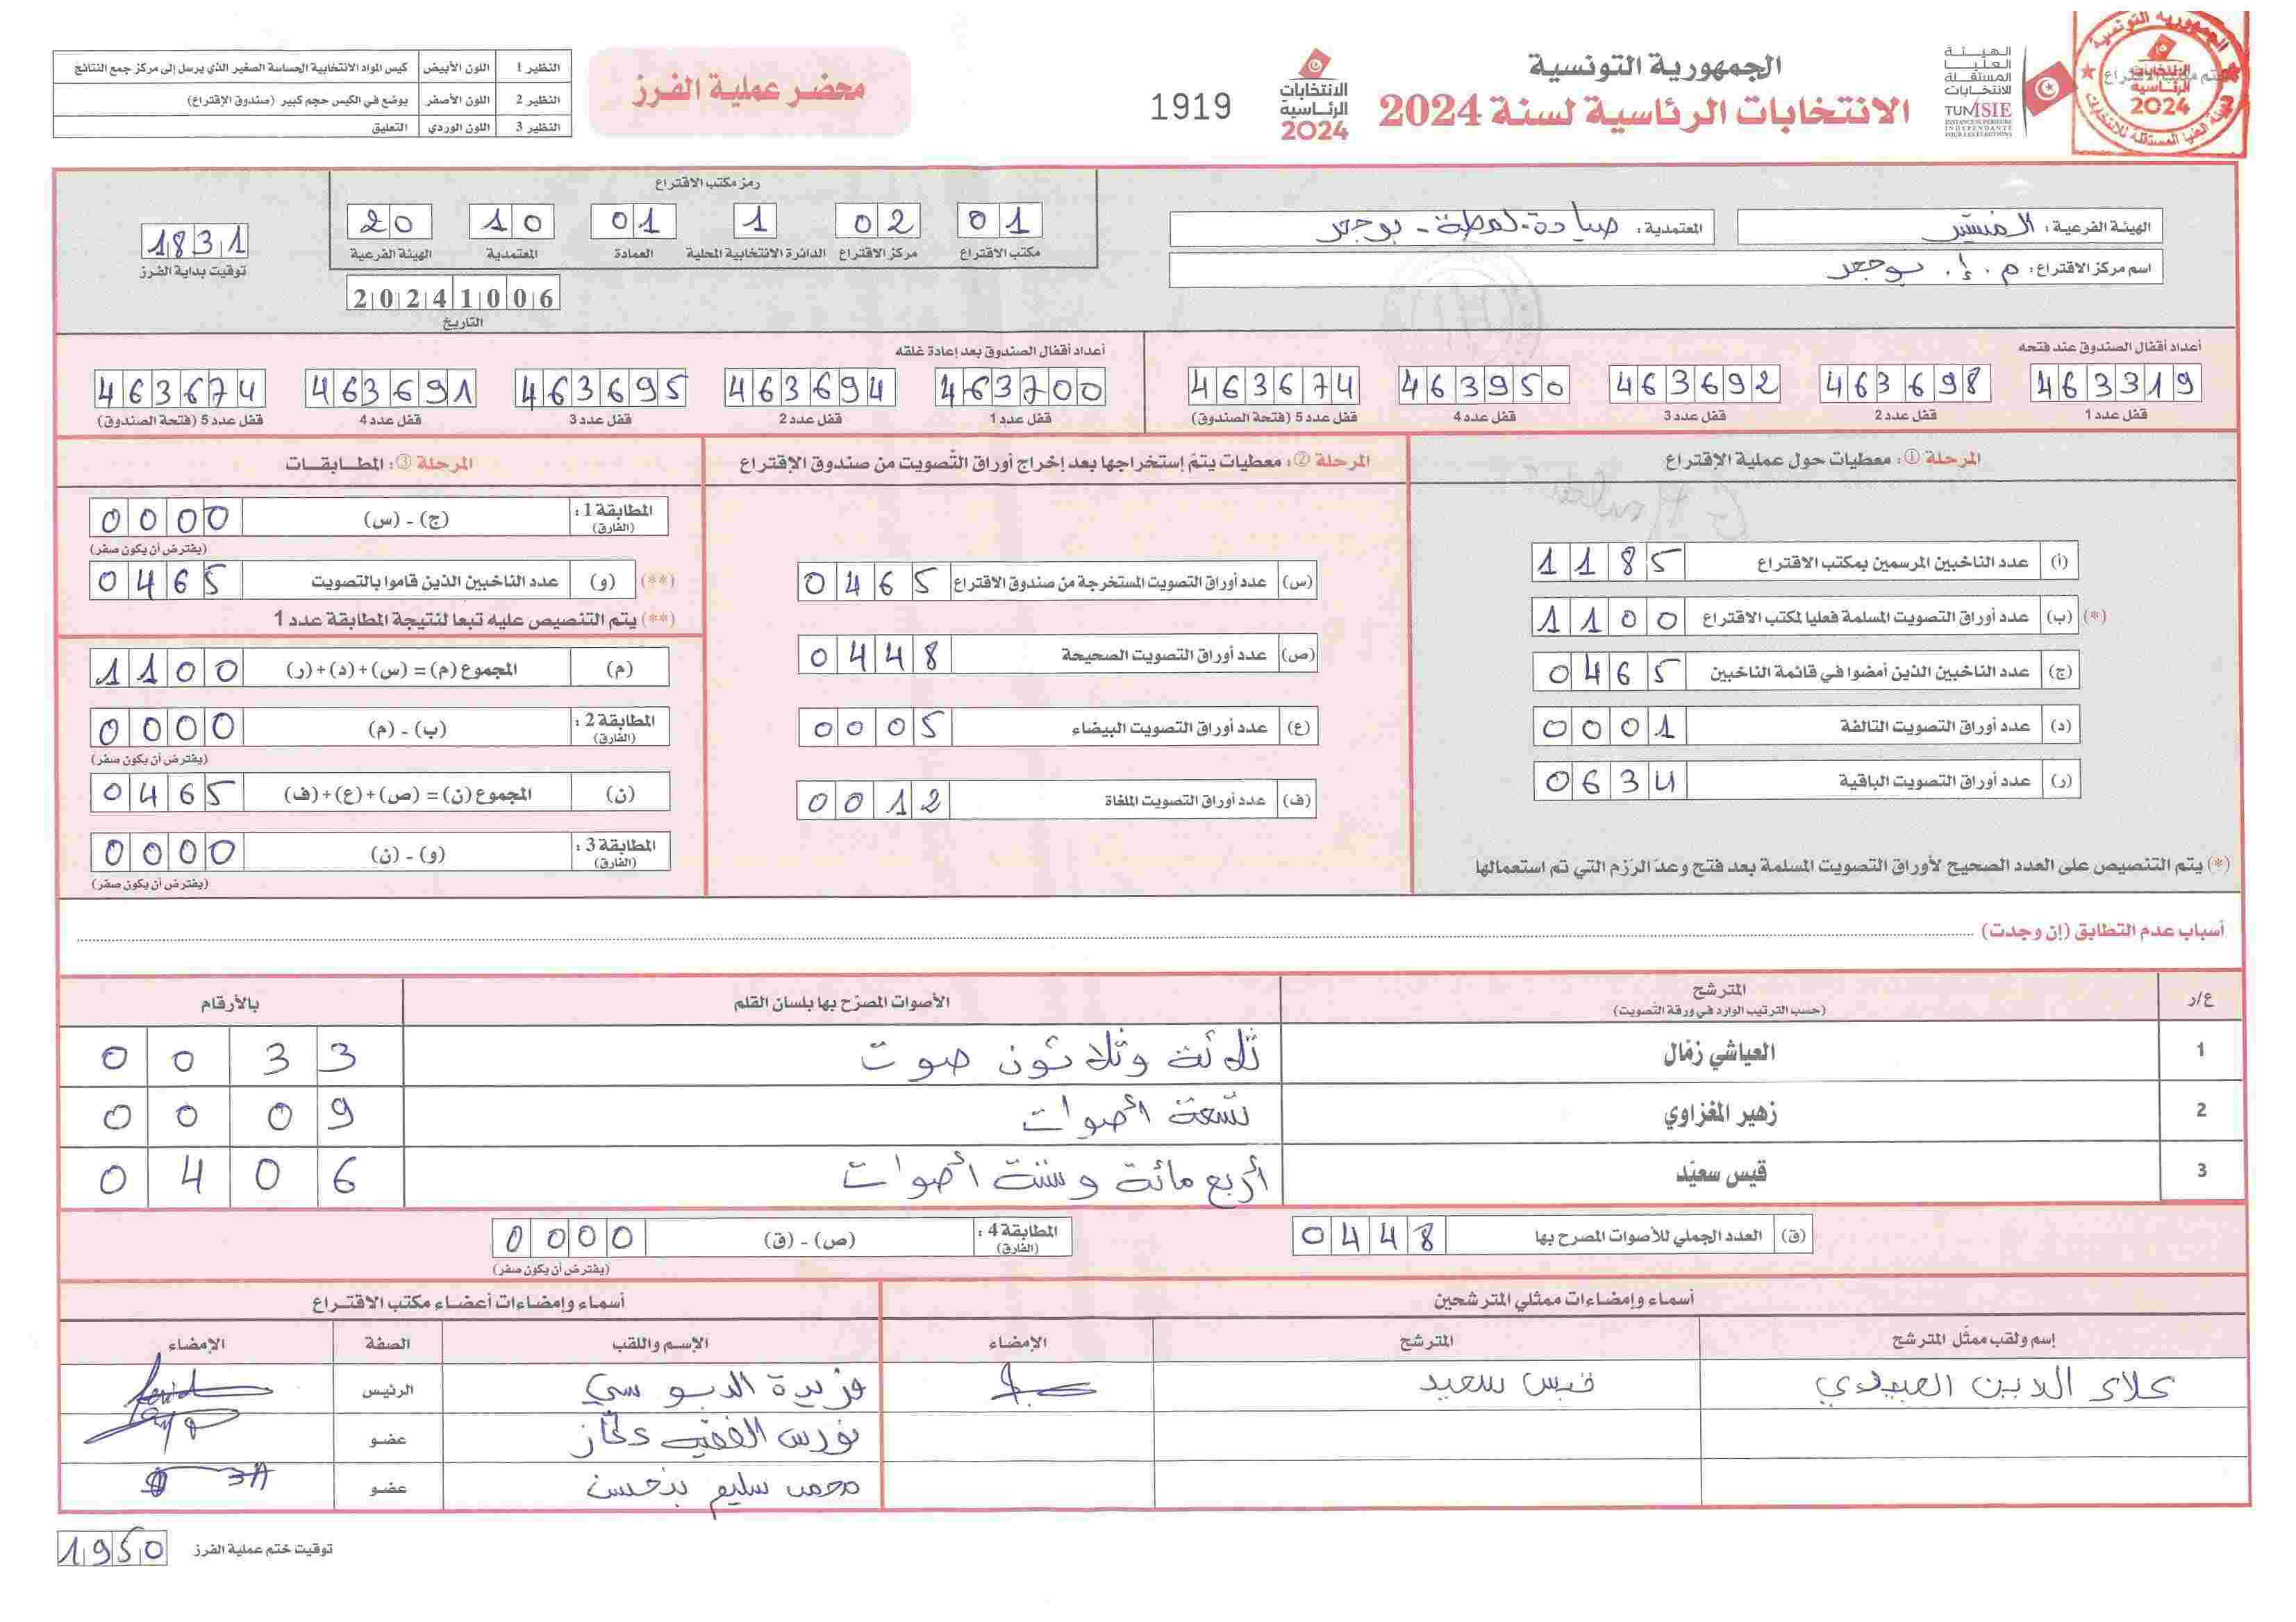 الجمهورية التونسية
الانتخابات الرئاسية لسنة 2024
الهيئة العليا المستقلة للانتخابات
TUNISIE
INSTANCE SUPÉRIEURE INDÉPENDANTE POUR LES ÉLECTIONS
الجمهورية التونسية
ختم مكتب الاقتراع
الانتخابات الرئاسية 2024
الانتخابات الرئاسية 2024
1919
محضر عملية الفرز
النظير 1 اللون الأبيض كيس المواد الانتخابية الحساسة الصغير الذي يرسل إلى مركز جمع النتائج
النظير 2 اللون الأصفر يوضع في الكيس حجم كبير (صندوق الإقتراع)
النظير 3 اللون الوردي التعليق
الهيئة الفرعية: المنستير
المعتمدية: صيادة-لمطة-بوحجر
اسم مركز الاقتراع: م.إ. بوحجر
رمز مكتب الاقتراع
01 02 1 01 10 20
مكتب الاقتراع مركز الاقتراع الدائرة الانتخابية المحلية العمادة المعتمدية الهيئة الفرعية
20241006
التاريخ
1831
توقيت بداية الفرز
أعداد أقفال الصندوق عند فتحه
463319 463698 463692 463950 463674
قفل عدد 1 قفل عدد 2 قفل عدد 3 قفل عدد 4 قفل عدد 5 (فتحة الصندوق)
أعداد أقفال الصندوق بعد إعادة غلقه
463700 463694 463695 463691 463674
قفل عدد 1 قفل عدد 2 قفل عدد 3 قفل عدد 4 قفل عدد 5 (فتحة الصندوق)
المرحلة ①: معطيات حول عملية الإقتراع
(أ) عدد الناخبين المرسمين بمكتب الاقتراع 1185
(*) (ب) عدد أوراق التصويت المسلمة فعليا لمكتب الاقتراع 1100
(ج) عدد الناخبين الذين أمضوا في قائمة الناخبين 0465
(د) عدد أوراق التصويت التالفة 0001
(ر) عدد أوراق التصويت الباقية 0634
(*) يتم التنصيص على العدد الصحيح لأوراق التصويت المسلمة بعد فتح وعدّ الرّزم التي تم استعمالها
المرحلة ②: معطيات يتمّ إستخراجها بعد إخراج أوراق التّصويت من صندوق الإقتراع
(س) عدد أوراق التصويت المستخرجة من صندوق الاقتراع 0465
(ص) عدد أوراق التصويت الصحيحة 0448
(ع) عدد أوراق التصويت البيضاء 0005
(ف) عدد أوراق التصويت الملغاة 0012
المرحلة ③: المطابقات
المطابقة 1: (الفارق) (ج) - (س) 0000
(يفترض أن يكون صفر)
(**) (و) عدد الناخبين الذين قاموا بالتصويت 0465
(**) يتم التنصيص عليه تبعا لنتيجة المطابقة عدد 1
(م) المجموع (م) = (س)+(د)+(ر) 1100
المطابقة 2: (الفارق) (ب) - (م) 0000
(يفترض أن يكون صفر)
(ن) المجموع (ن) = (ص)+(ع)+(ف) 0465
المطابقة 3: (الفارق) (و) - (ن) 0000
(يفترض أن يكون صفر)
أسباب عدم التطابق (إن وجدت)
ع/ر المترشح الأصوات المصرّح بها بلسان القلم بالأرقام
(حسب الترتيب الوارد في ورقة التصويت)
1 العياشي زمّال ثلاثة وثلاثون صوت 0033
2 زهير المغزاوي تسعة أصوات 0009
3 قيس سعيّد أربع مائة وستة أصوات 0406
(ق) العدد الجملي للأصوات المصرح بها 0448
المطابقة 4: (الفارق) (ص) - (ق) 0000
(يفترض أن يكون صفر)
أسماء وإمضاءات ممثلي المترشحين
إسم ولقب ممثّل المترشح المترشح الإمضاء
علاء الدين العبيدي قيس سعيد
أسماء وإمضاءات أعضاء مكتب الاقتراع
الإسم واللقب الصفة الإمضاء
فريدة الدبوسي الرئيس
نورس الفقيه عضو
محمد سليم بنحسن عضو
توقيت ختم عملية الفرز 1950